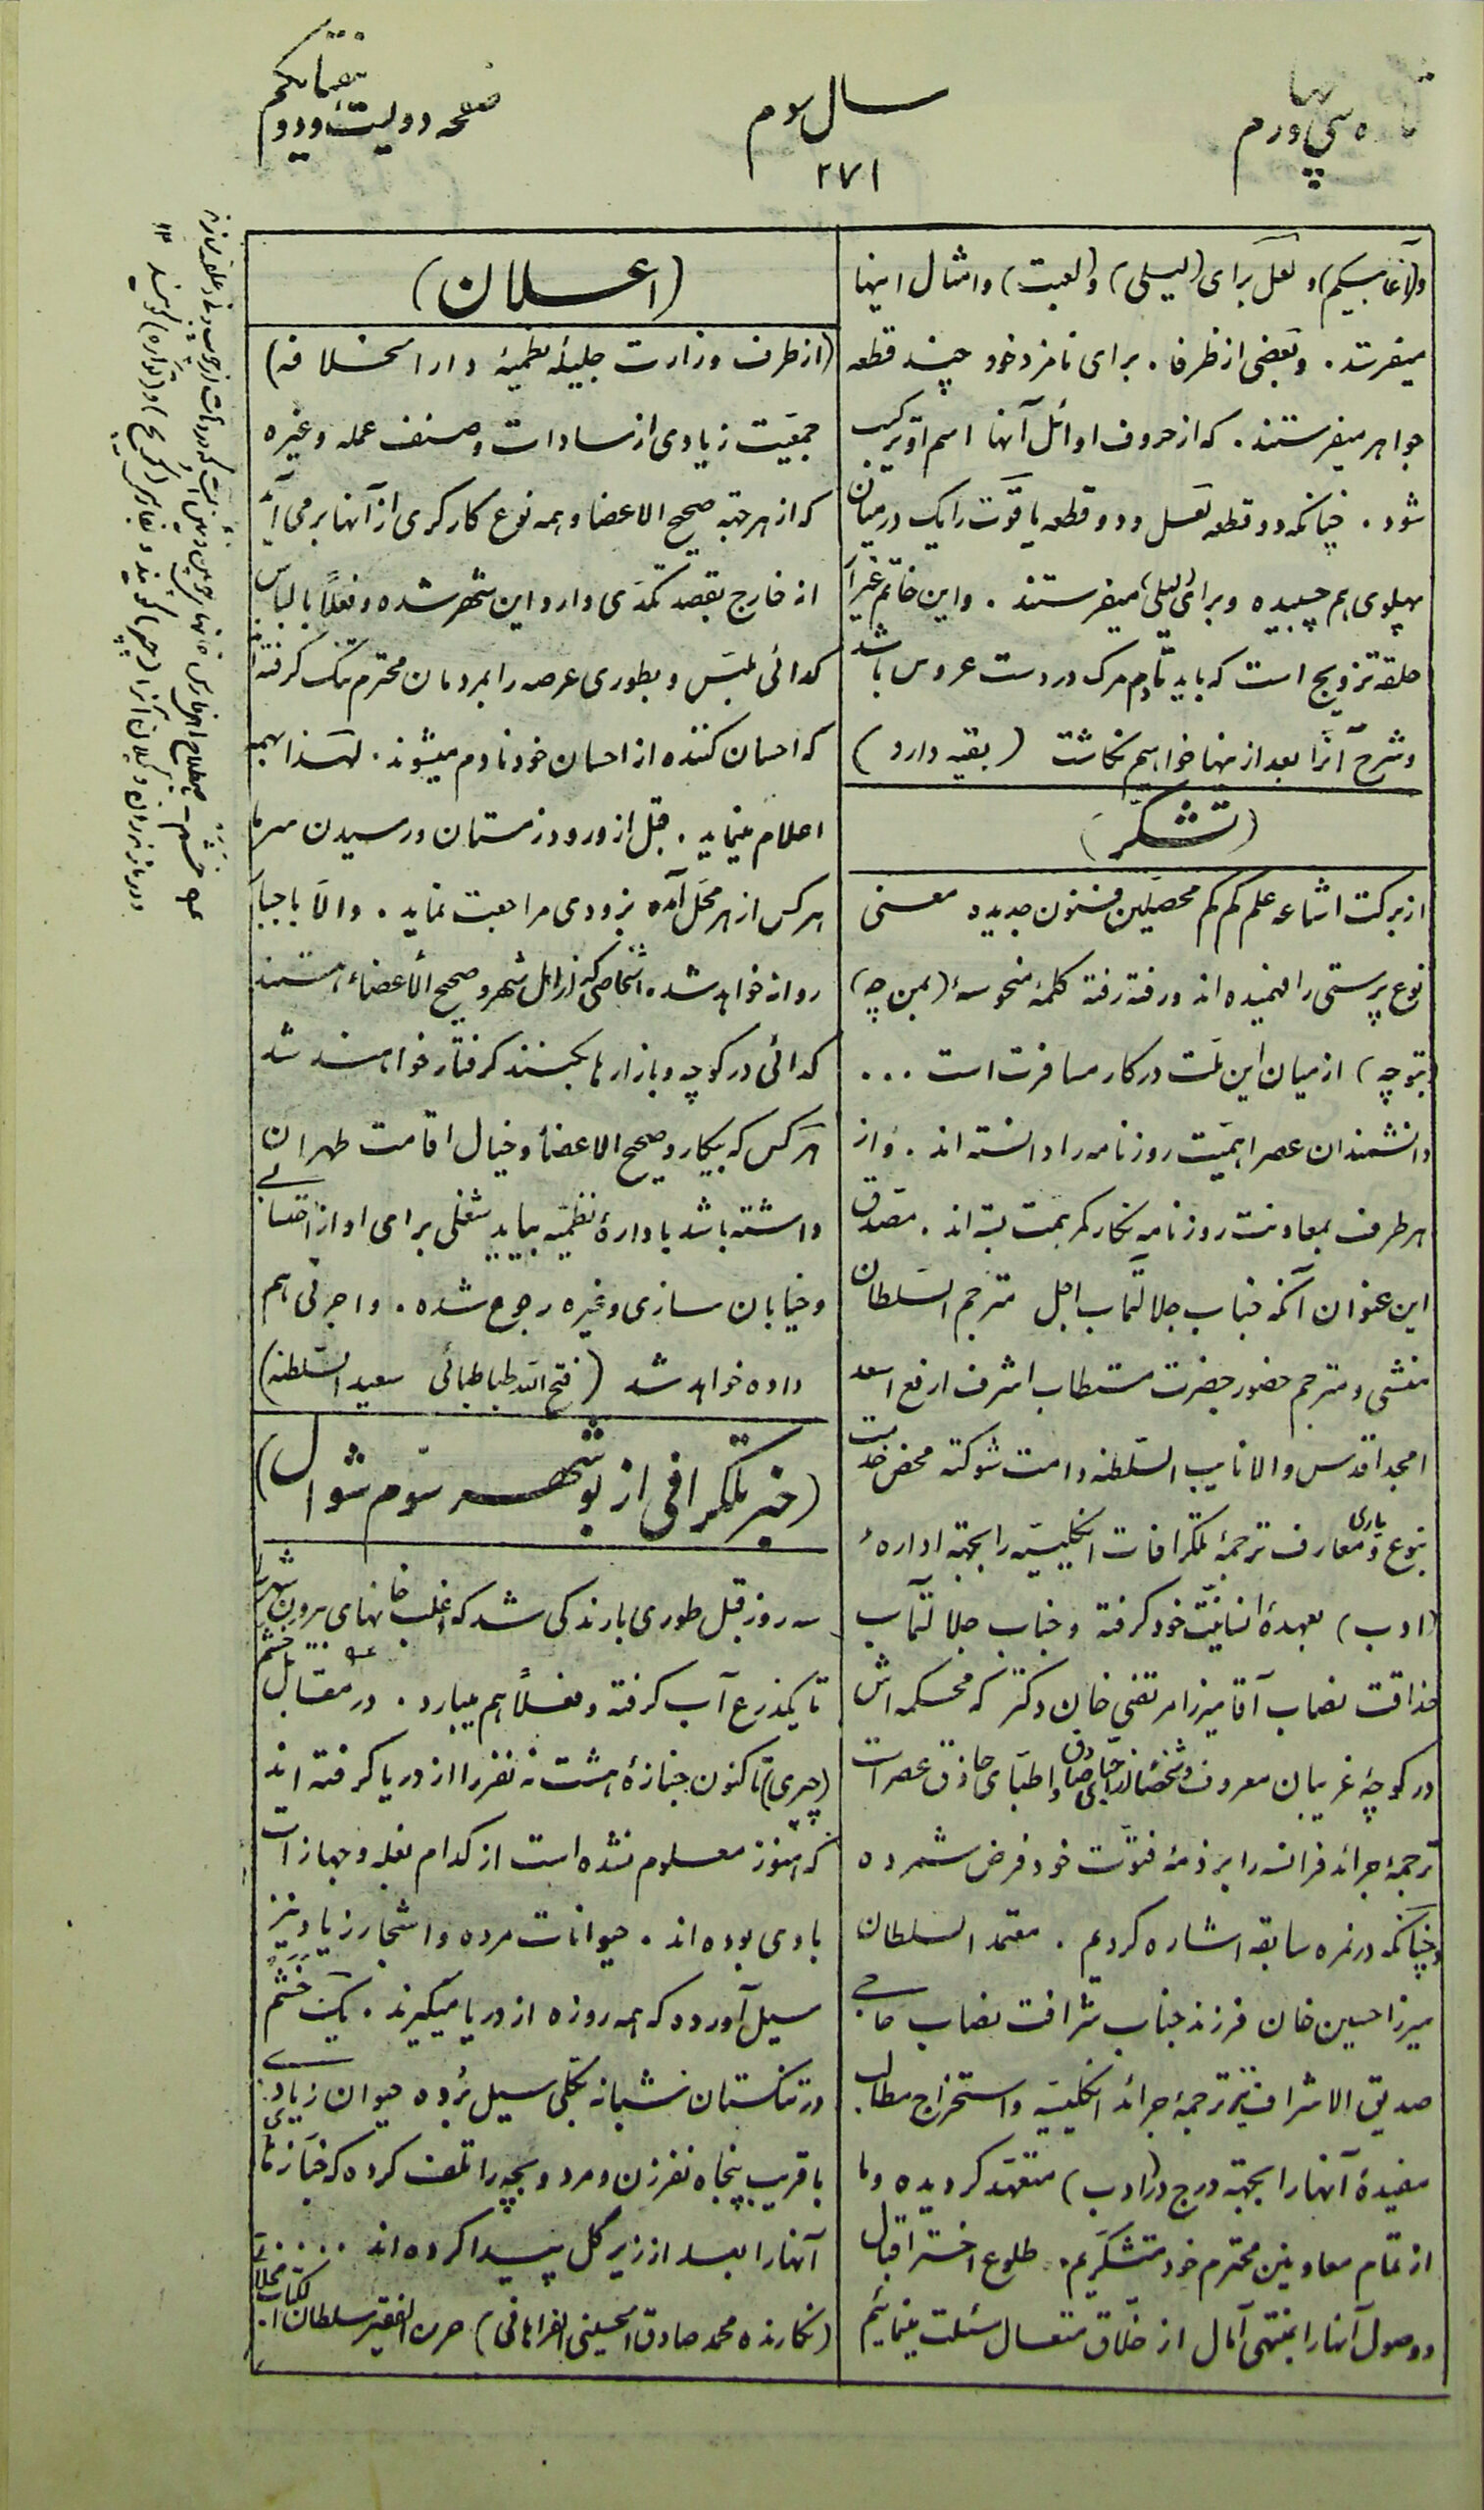 سال سوم
۲۷۱
صفحه دویست و دوم
و (آغا بیگم) و لعل برای (لیلی) و (لعبت) و امثال اینها
میفرستد . و بعضی از ظرفا . برای نامزد خود چند قطعه
جواهر میفرستند . که از حروف اوائل آنها اسم او ترکیب
شود . چنانکه دو قطعه لعل و دو قطعه یاقوت را یک درمیان
پهلوی هم چسبیده و برای لیلی میفرستند . و این خاتم غیر از
حلقه تزویج است که باید تا دم مرگ در دست عروس باشد
و شرح آنرا بعد از مها خواهیم نگاشت (بقیه دارد)
(تشکر)
از برکت اشاعه علم کم کم محصلین فنون جدیده معنی
نوع پرستی را فهمیده اند و رفته رفته کلمهٔ منحوسهٔ (بمن چه)
(بتو چه) از میان این ملت در کار مسافرت است ...
دانشمندان عصر اهمیت روزنامه را دانسته اند . و از
هر طرف بمعاونت روزنامه نگار کمر همت بسته اند . مصدق
این عنوان آنکه جناب جلالتمآب اجل مترجم السلطان
منشی و مترجم حضور حضرت مستطاب اشرف ارفع اسعد
امجد اقدس والا نایب السلطنه دامت شوکته محض خدمت
بنوع و یاری معارف ترجمهٔ تلگرافات انگلیسیه را بجهته ادارهٔ
(ادب) بعهدهٔ انسانیت خود گرفته و جناب جلالتمآب
حذاقت نصاب آقا میرزا مرتضی خان دکتر که محکمه اش
در کوچهٔ غریبان معروف و شخصا از احبای صادق و اطبای حاذق عصر است
ترجمهٔ جرائد فرانسه را بر ذمهٔ فتوت خود فرض شمرده
و چنانکه در نمره سابقه اشاره کردیم . معتمد السلطان
میرزا حسین خان فرزند جناب شرافت نصاب حاجی
صدیق الاشراف نیز ترجمهٔ جرائد انگلیسیه و استخراج مطالب
مفیدهٔ آنها را بجهته درج در (ادب) متعهد گردیده و ما
از تمام معاونین محترم خود متشکریم . طلوع اختر اقبال
و وصول آنها را بمنتهی آمال از خلاق متعال مسئلت مینمائیم
(اعلان)
(از طرف وزارت جلیله نظمیهٔ دار الخلافه)
جمعیت زیادی از سادات و صنف عمله و غیره
که از هر جهته صحیح الاعضا و همه نوع کارگری از آنها بر می آید
از خارج بقصد تکدی وارد این شهر شده و فعلاً بالباس
گدائی ملبس و بطوری عرصه را بمردمان محترم تنگ گرفته اند
که احسان کننده از احسان خود نادم میشوند . لهذا بهمه
اعلام مینماید . قبل از ورود زمستان و رسیدن سرما
هر کس از هر محل آمده بزودی مراجعت نماید . والا باجبار
روانه خواهد شد . اشخاصی که از اهل شهر و صحیح الاعضاء هستند
گدائی در کوچه و بازارها بکنند گرفتار خواهند شد
هر کس که بیکار و صحیح الاعضا و خیال اقامت طهران
داشته باشد باداره نظمیه بیاید شغلی برای او از
و خیابان سازی و غیره رجوع شده . و اجرتی هم
داده خواهد شد (فتح الله طباطبائی سعید السلطنه)
(خبر تلگرافی از بوشهر سوم شوال)
سه روز قبل طوری بارندگی شد که اغلب خانهای بیرون شهر را
تا یکذرع آب گرفته و فعلاً هم میبارد . در مقابل خشم
(چری) تا کنون جنازهٔ هشت نه نفر را از دریا گرفته اند
که هنوز معلوم نشده است از کدام بغله و جهازات
بادی بوده اند . حیوانات مرده و اشجار زیاد نیز
سیل آورده که همه روزه از دریا میگیرند . یک خشم
در تنگستان شبانه بکلی سیل برده حیوان زیادی
با قریب پنجاه نفر زن و مرد و بچه را تلف کرده که جنازهٔ
آنها را بعد از زیر گل پیدا کرده اند ....
(نگارنده محمد صادق الحسینی الفراهانی) حرره الفقیر سلطان الکتاب